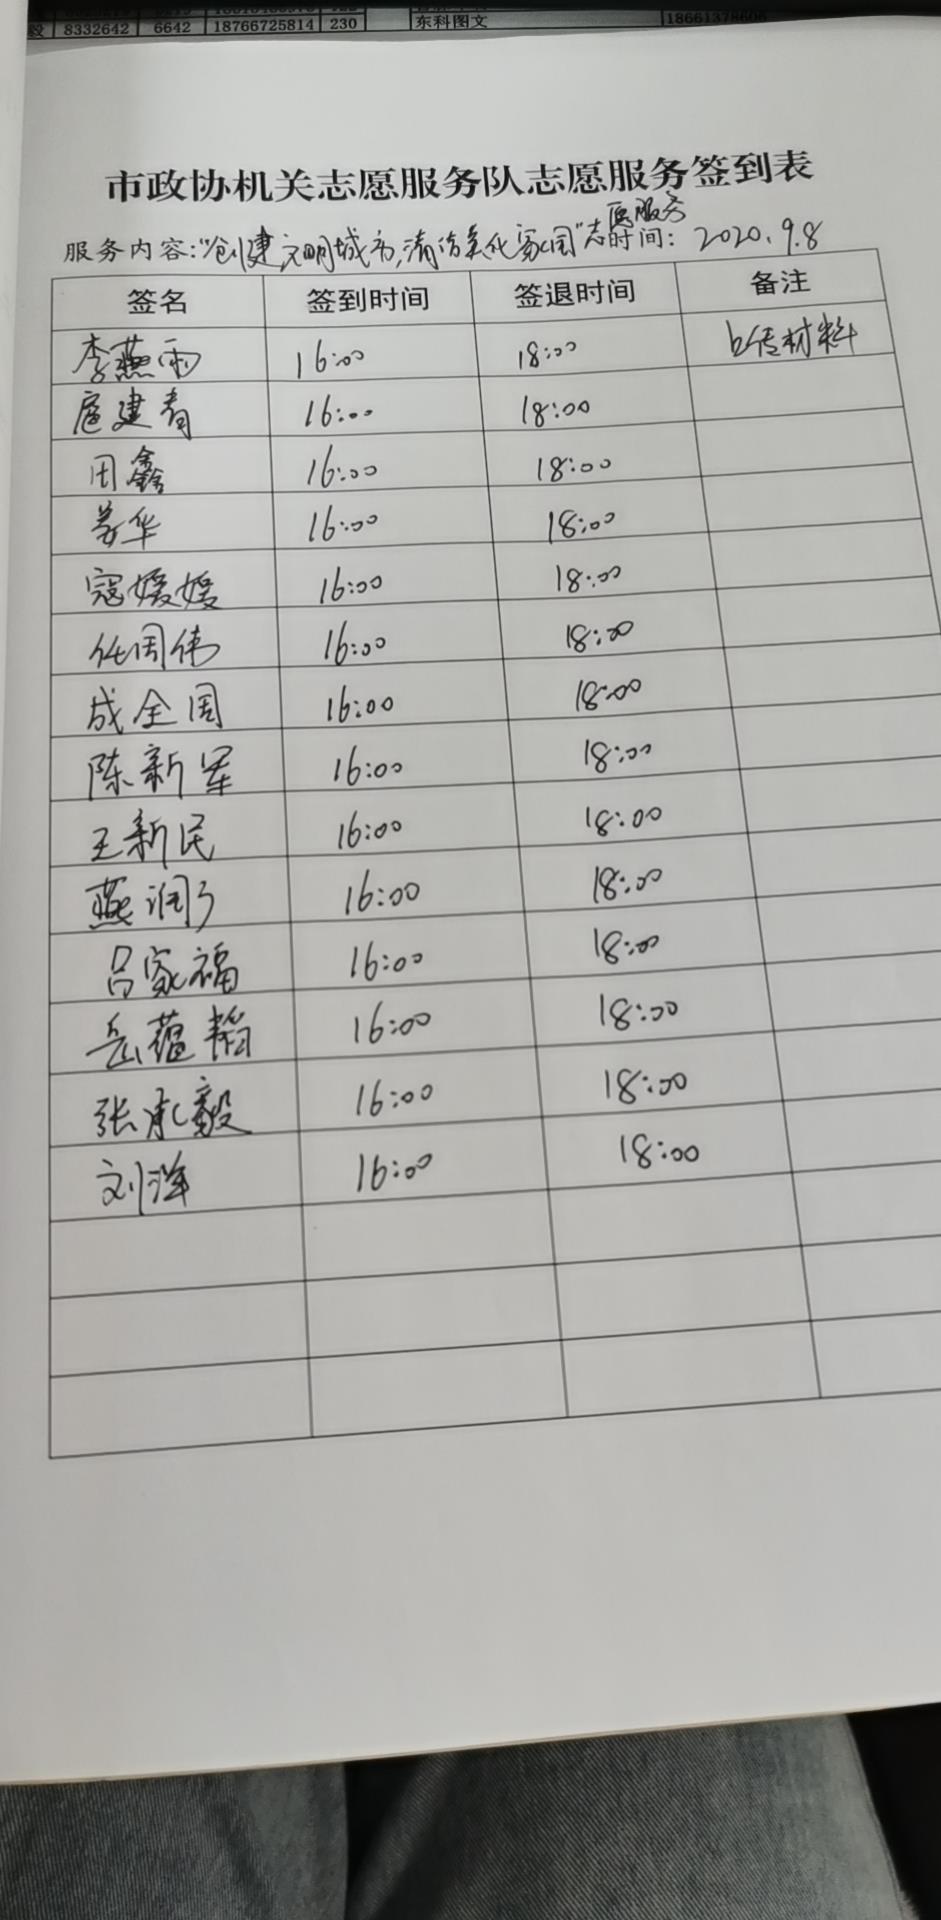 8332642 6642 18766725814 230 东科图文 18661378606
市政协机关志愿服务队志愿服务签到表
服务内容:"创建文明城市,清洁美化家园"志愿服务 时间: 2020.9.8
签名 签到时间 签退时间 备注
李燕雨 16:00 18:00 上传材料
扈建青 16:00 18:00
田鑫 16:00 18:00
姜华 16:00 18:00
寇媛媛 16:00 18:00
任周伟 16:00 18:00
成全周 16:00 18:00
陈新军 16:00 18:00
王新民 16:00 18:00
燕润 16:00 18:00
吕家福 16:00 18:00
岳蕴韬 16:00 18:00
张承毅 16:00 18:00
刘洋 16:00 18:00